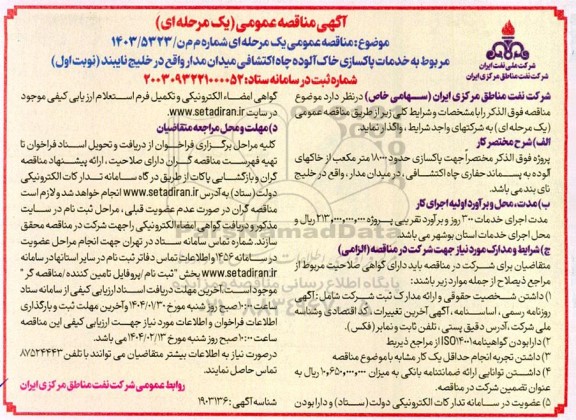 آگهی مناقصه عمومی (یک مرحله ای)
موضوع: مناقصه عمومی یک مرحله ای شماره م م ن/۱۴۰۳/۵۳۲۳
مربوط به خدمات پاکسازی خاک آلوده چاه اکتشافی میدان مدار واقع در خلیج نایبند (نوبت اول)
شماره ثبت در سامانه ستاد: ۲۰۰۳۰۹۳۲۲۱۰۰۰۰۵۲
شرکت ملی نفت ایران
شرکت نفت مناطق مرکزی ایران
شرکت نفت مناطق مرکزی ایران (سهامی خاص) در نظر دارد موضوع
مناقصه فوق الذکر را با مشخصات و شرایط کلی زیر از طریق مناقصه عمومی
(یک مرحله ای) به شرکتهای واجد شرایط ، واگذار نماید.
الف) شرح مختصر کار
پروژه فوق الذکر مختصراً جهت پاکسازی حدود ۱۸۰۰۰ متر مکعب از خاکهای
آلوده به پسماند حفاری چاه اکتشافی ، در میدان مدار ، واقع در خلیج
نای بند می باشد.
ب) مدت، محل و برآورد اولیه اجرای کار
مدت اجرای خدمات ۳۰۰ روز و برآورد تقریبی پروژه ۲۱۳,۰۰۰,۰۰۰,۰۰۰ ریال و
محل اجرای خدمات استان بوشهر می باشد
ج) شرایط و مدارک مورد نیاز جهت شرکت در مناقصه (الزامی)
متقاضیان برای شرکت در مناقصه باید دارای گواهی صلاحیت مربوط از
مراجع ذیصلاح از جمله موارد زیر باشند:
۱) داشتن شخصیت حقوقی و ارائه مدارک ثبت شرکت شامل : آگهی
روزنامه رسمی ، اساسنامه ، آگهی آخرین تغییرات ، کد اقتصادی و شناسه
ملی شرکت، آدرس دقیق پستی ، تلفن ثابت و نمابر (فکس).
۲) دارا بودن گواهینامه ISO۱۴۰۰۱ از مراجع ذیربط
۳) داشتن تجربه انجام حداقل یک کار مشابه با موضوع مناقصه
۴) داشتن توانایی ارائه ضمانتنامه بانکی به میزان ۱۰,۶۵۰,۰۰۰,۰۰۰ ریال به
عنوان تضمین شرکت در مناقصه.
۵) عضویت در سامانه تدارکات الکترونیکی دولت (ستاد) و دارا بودن
گواهی امضاء الکترونیکی و تکمیل فرم استعلام ارزیابی کیفی موجود
در سایت www.setadiran.ir.
د) مهلت و محل مراجعه متقاضیان
کلیه مراحل برگزاری فراخوان از دریافت و تحویل اسناد فراخوان تا
تهیه فهرست مناقصه گران دارای صلاحیت ، ارائه پیشنهاد مناقصه
گران و بازگشایی پاکات از طریق درگاه سامانه تدارکات الکترونیکی
دولت (ستاد) به آدرس www.setadiran.ir انجام خواهد شد و لازم است
مناقصه گران در صورت عدم عضویت قبلی ، مراحل ثبت نام در سایت
مذکور و دریافت گواهی امضاء الکترونیکی را جهت شرکت در مناقصه محقق
سازند. شماره تماس سامانه ستاد در تهران جهت انجام مراحل عضویت
در سامانه ۱۴۵۶ و اطلاعات تماس دفاتر ثبت نام در سایر استانها در سامانه
www.setadiran.ir بخش "ثبت نام / پروفایل تامین کننده / مناقصه گر"
موجود است. آخرین مهلت دریافت اسناد ارزیابی کیفی از سامانه ستاد
ساعت ۱۰:۰۰ صبح روز شنبه مورخ ۱۴۰۴/۰۱/۳۰ و آخرین مهلت ثبت و بارگذاری
اطلاعات فراخوان و اطلاعات مورد نیاز جهت ارزیابی کیفی این مناقصه
ساعت ۱۰:۰۰ صبح روز شنبه مورخ ۱۴۰۴/۰۲/۱۳ می باشد.
در صورت نیاز به اطلاعات بیشتر متقاضیان می توانند با تلفن ۸۷۵۲۴۴۴۳
تماس حاصل نمایند.
روابط عمومی شرکت نفت مناطق مرکزی ایران
شناسه آگهی: ۱۹۰۳۱۳۶